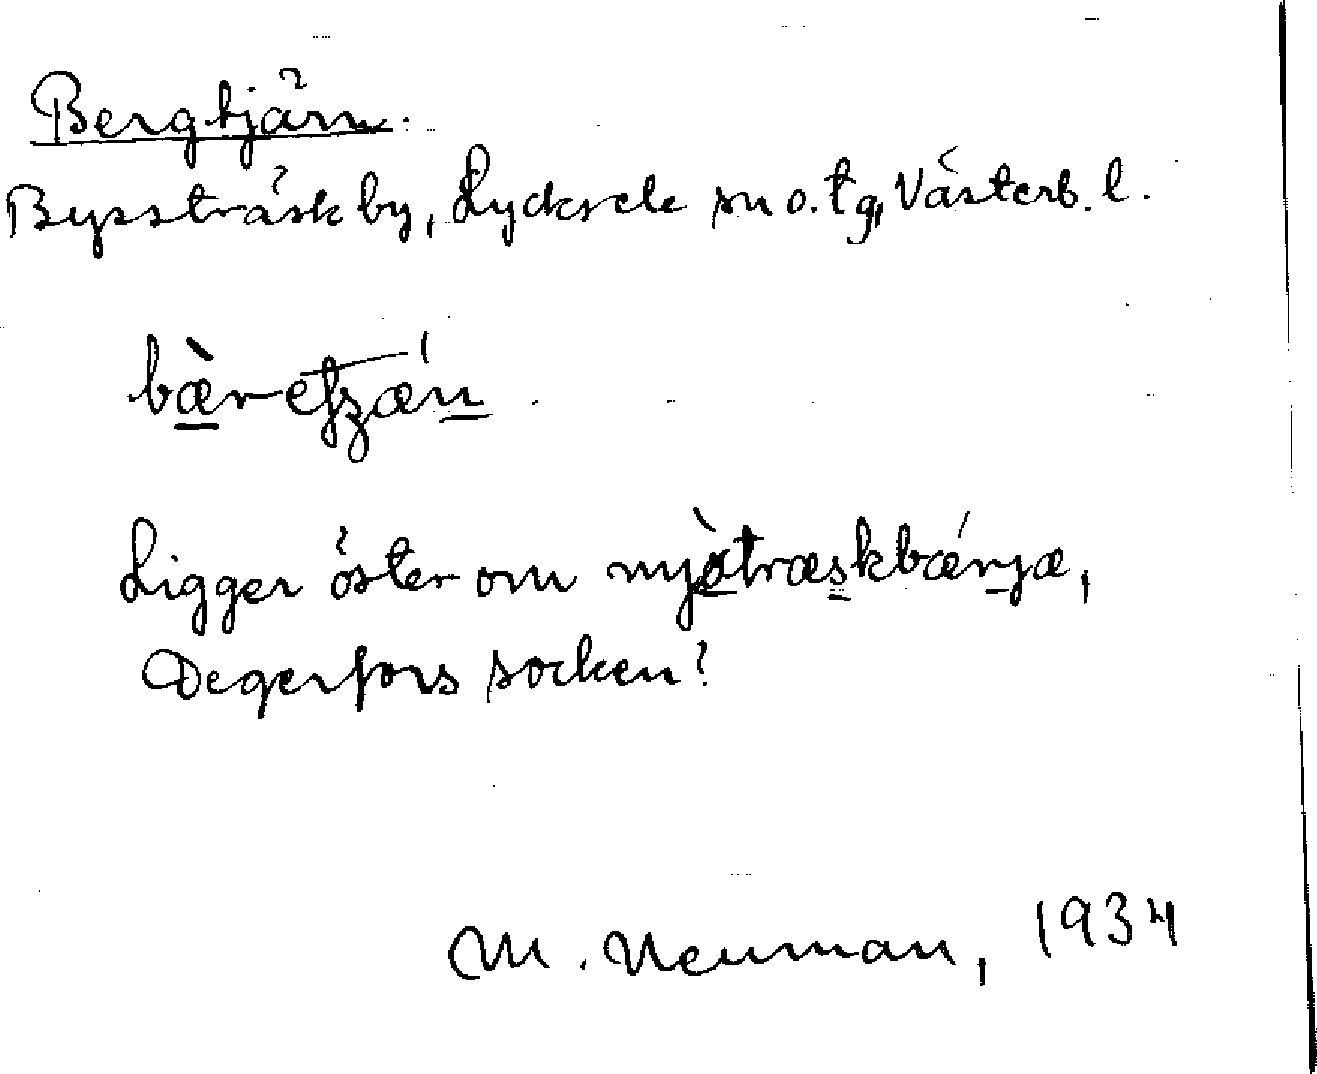 Bergtjärn.
Bysträsk by, Lycksele sn o. tg, Västerb. l.
Ligger öster om nyåtræskbærjæ,
Degerfors socken?
M. Neuman, 1934